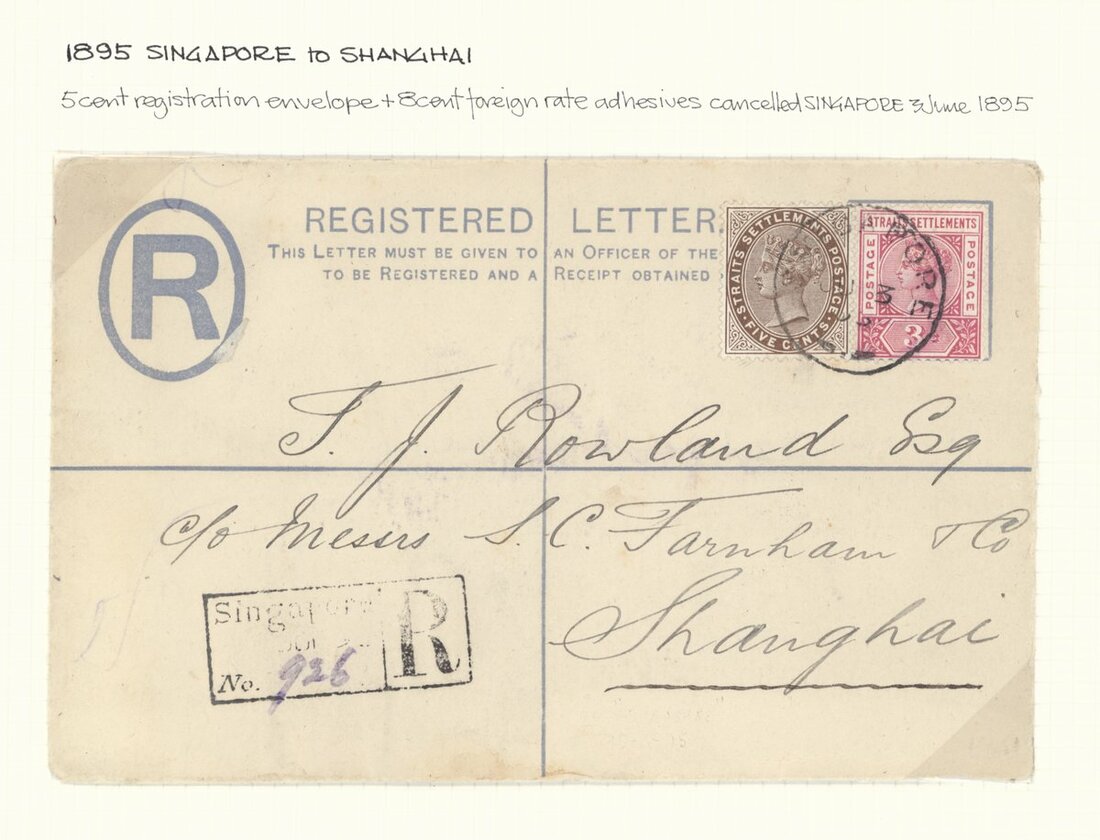 1895 SINGAPORE to SHANGHAI
5 cent registration envelope + 8 cent foreign rate adhesives cancelled SINGAPORE 3 June 1895
R
REGISTERED LETTER.
THIS LETTER MUST BE GIVEN TO AN OFFICER OF THE
TO BE REGISTERED AND A RECEIPT OBTAINED
STRAITS SETTLEMENTS POSTAGE
FIVE CENTS
STRAITS SETTLEMENTS
POSTAGE POSTAGE
3
PORE
T. J. Rowland Esq
c/o Messrs S. C. Farnham & Co
Shanghai
Singapore
R
No. 926